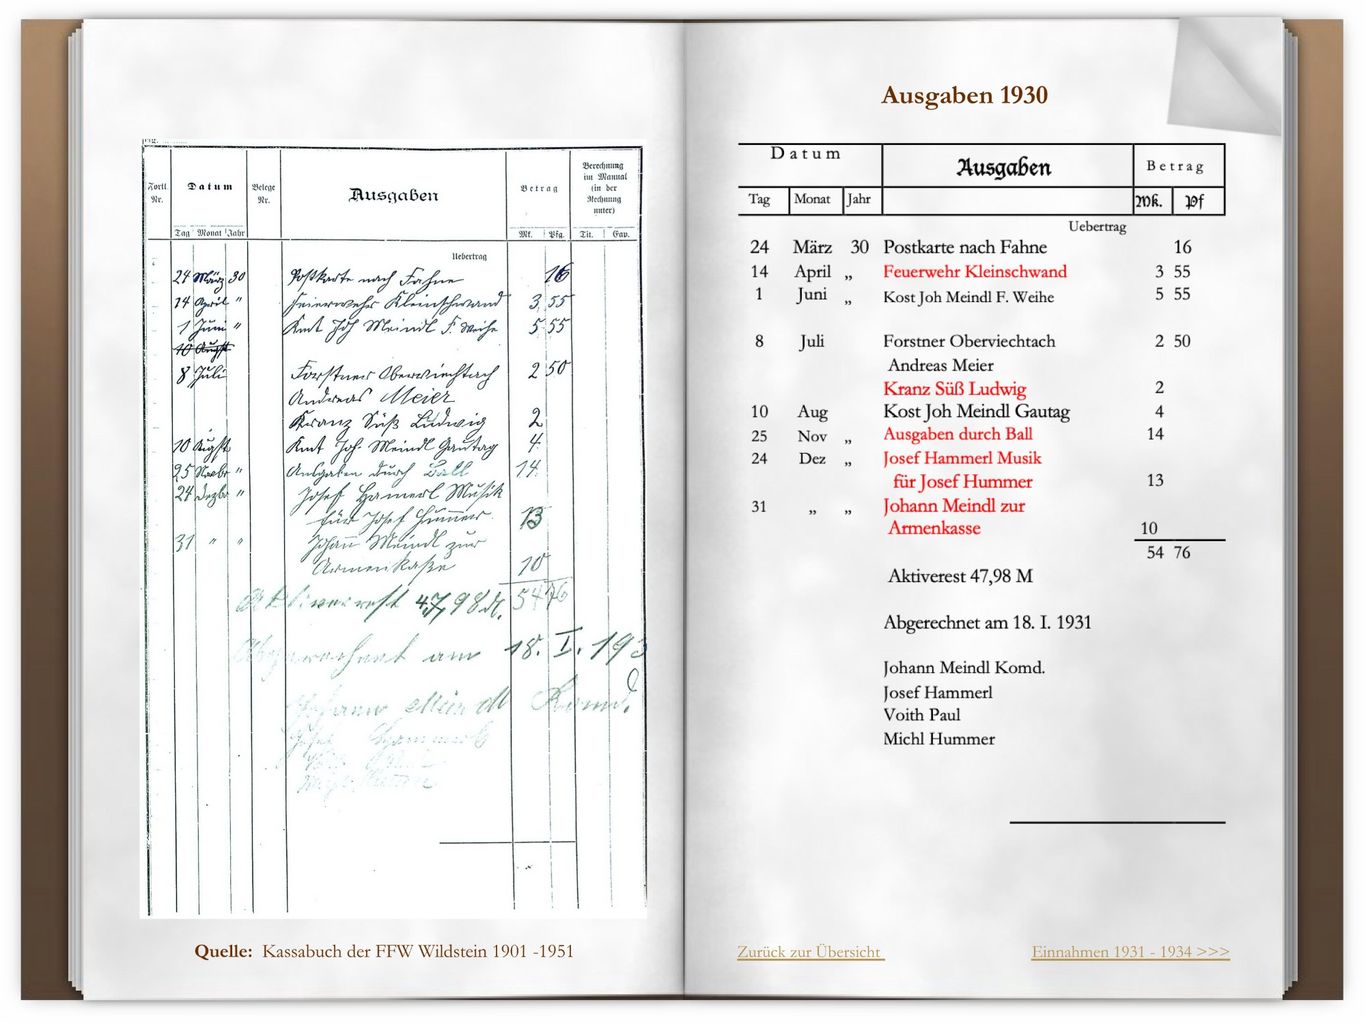 Fortl. Nr.
Datum
Belege Nr.
Ausgaben
Betrag
Berechnung
im Manual
(in der
Rechnung
unter)
Tag Monat Jahr
Mk. Pfg. Tit. Cap.
Uebertrag
24 März 30 Postkarte nach Fahne 16
14 April " Feierwehr Kleinschwand 3 55
1 Juni " Kost Joh Meindl F. Weihe 5 55
10 Augst
8 Juli Forstner Oberviechtach 2 50
Andreas Meier
Kranz Süß Ludwig 2
10 Augst Kost Joh. Meindl Gautag 4.
25 Novbr " Ausgaben durch Ball 14.
24 Dezbr " Josef Hamerl Musik
für Josef Hummer 13
31 " " Johann Meindl zur
Armenkaße 10
Aktiverrest 47,98 M. 54 76
Abgerechnet am 18. I. 193
Johann Meindl Komd.
Josef Hammerl
Quelle: Kassabuch der FFW Wildstein 1901 -1951
Ausgaben 1930
Datum Ausgaben Betrag
Tag Monat Jahr Mk. Pf
Uebertrag
24 März 30 Postkarte nach Fahne 16
14 April „ Feuerwehr Kleinschwand 3 55
1 Juni „ Kost Joh Meindl F. Weihe 5 55
8 Juli Forstner Oberviechtach 2 50
Andreas Meier
Kranz Süß Ludwig 2
10 Aug Kost Joh Meindl Gautag 4
25 Nov „ Ausgaben durch Ball 14
24 Dez „ Josef Hammerl Musik
für Josef Hummer 13
31 „ „ Johann Meindl zur
Armenkasse 10
54 76
Aktiverest 47,98 M
Abgerechnet am 18. I. 1931
Johann Meindl Komd.
Josef Hammerl
Voith Paul
Michl Hummer
Zurück zur Übersicht
Einnahmen 1931 - 1934 >>>